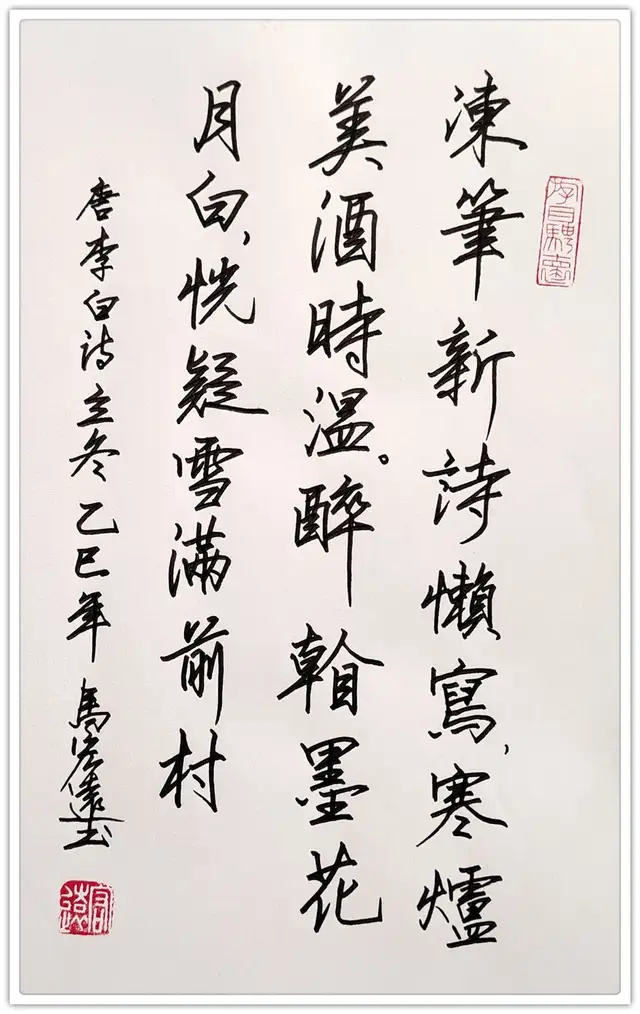 凍筆新詩懶寫，寒爐
美酒時温。醉墨花
月白，恍疑雪滿前村
唐李白詩立冬乙巳年 馬